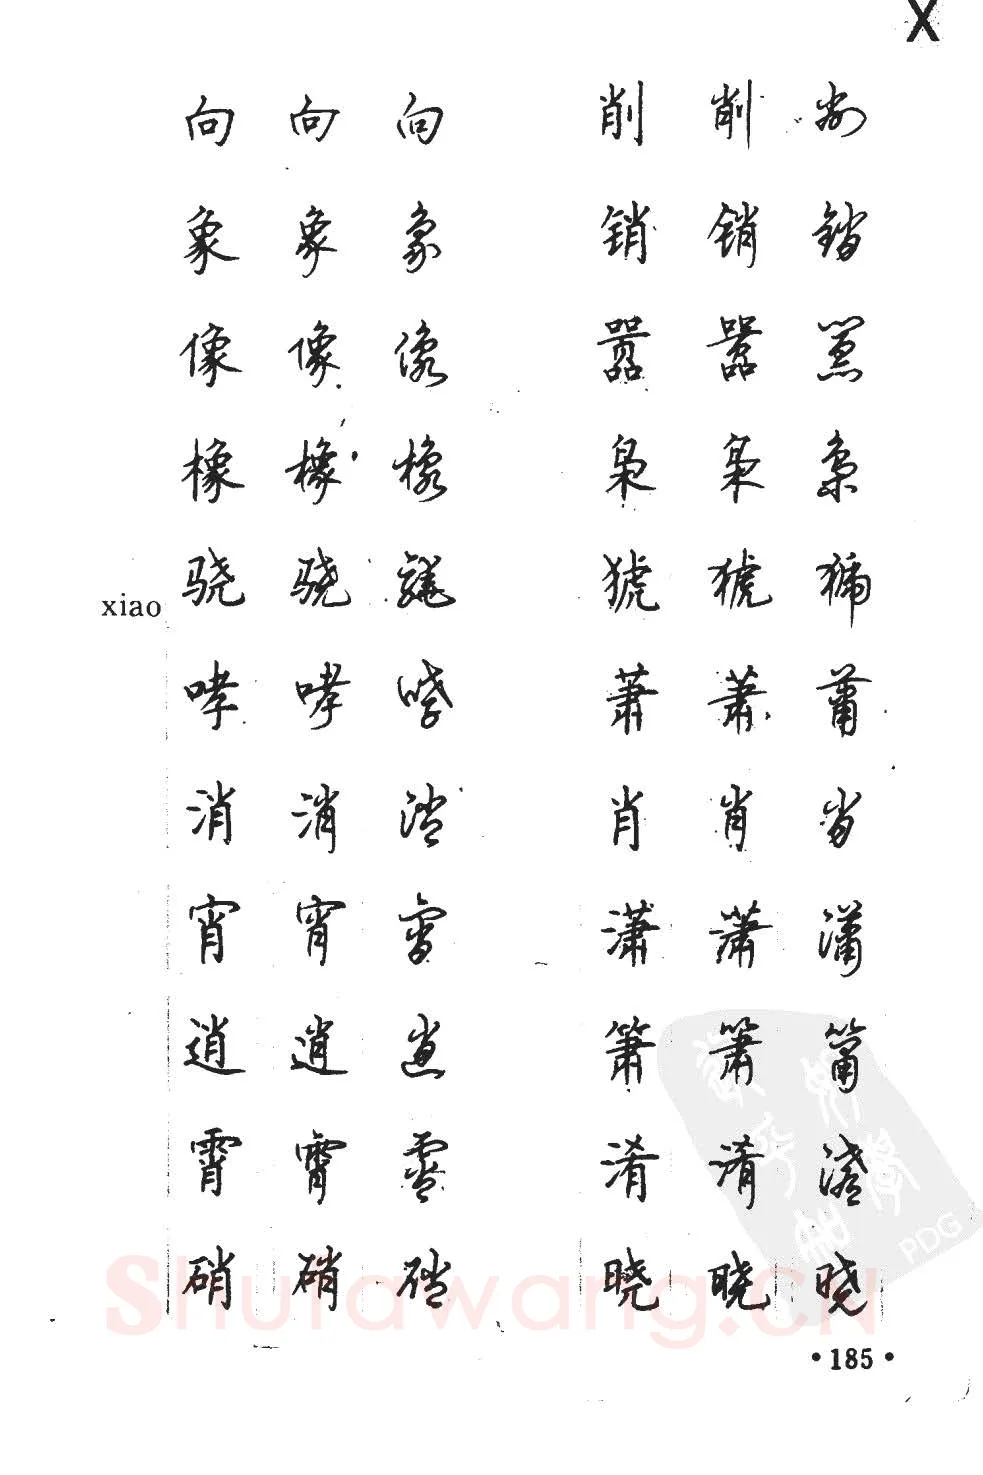 X
向 向 向 削 削 削
象 象 象 销 销 销
像 像 像 嚣 嚣 嚣
橡 橡 橡 枭 枭 枭
xiao 骁 骁 骁 猇 猇 猇
哮 哮 哮 萧 萧 萧
消 消 消 肖 肖 肖
宵 宵 宵 潇 潇 潇
逍 逍 逍 箫 箫 箫
霄 霄 霄 淆 淆 淆
硝 硝 硝 晓 晓 晓
Shufawang.CN
PDG
·185·